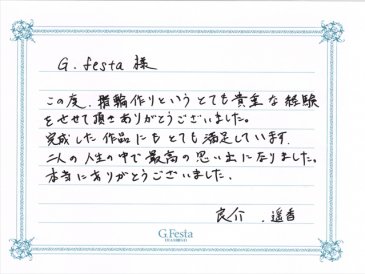 G. festa 様
この度、指輪作りというとても貴重な経験
をさせて頂きありがとうございました。
完成した作品にもとても満足しています。
二人の人生の中で最高の思い出になりました。
本当にありがとうございました。
良介、遥香
G.Festa